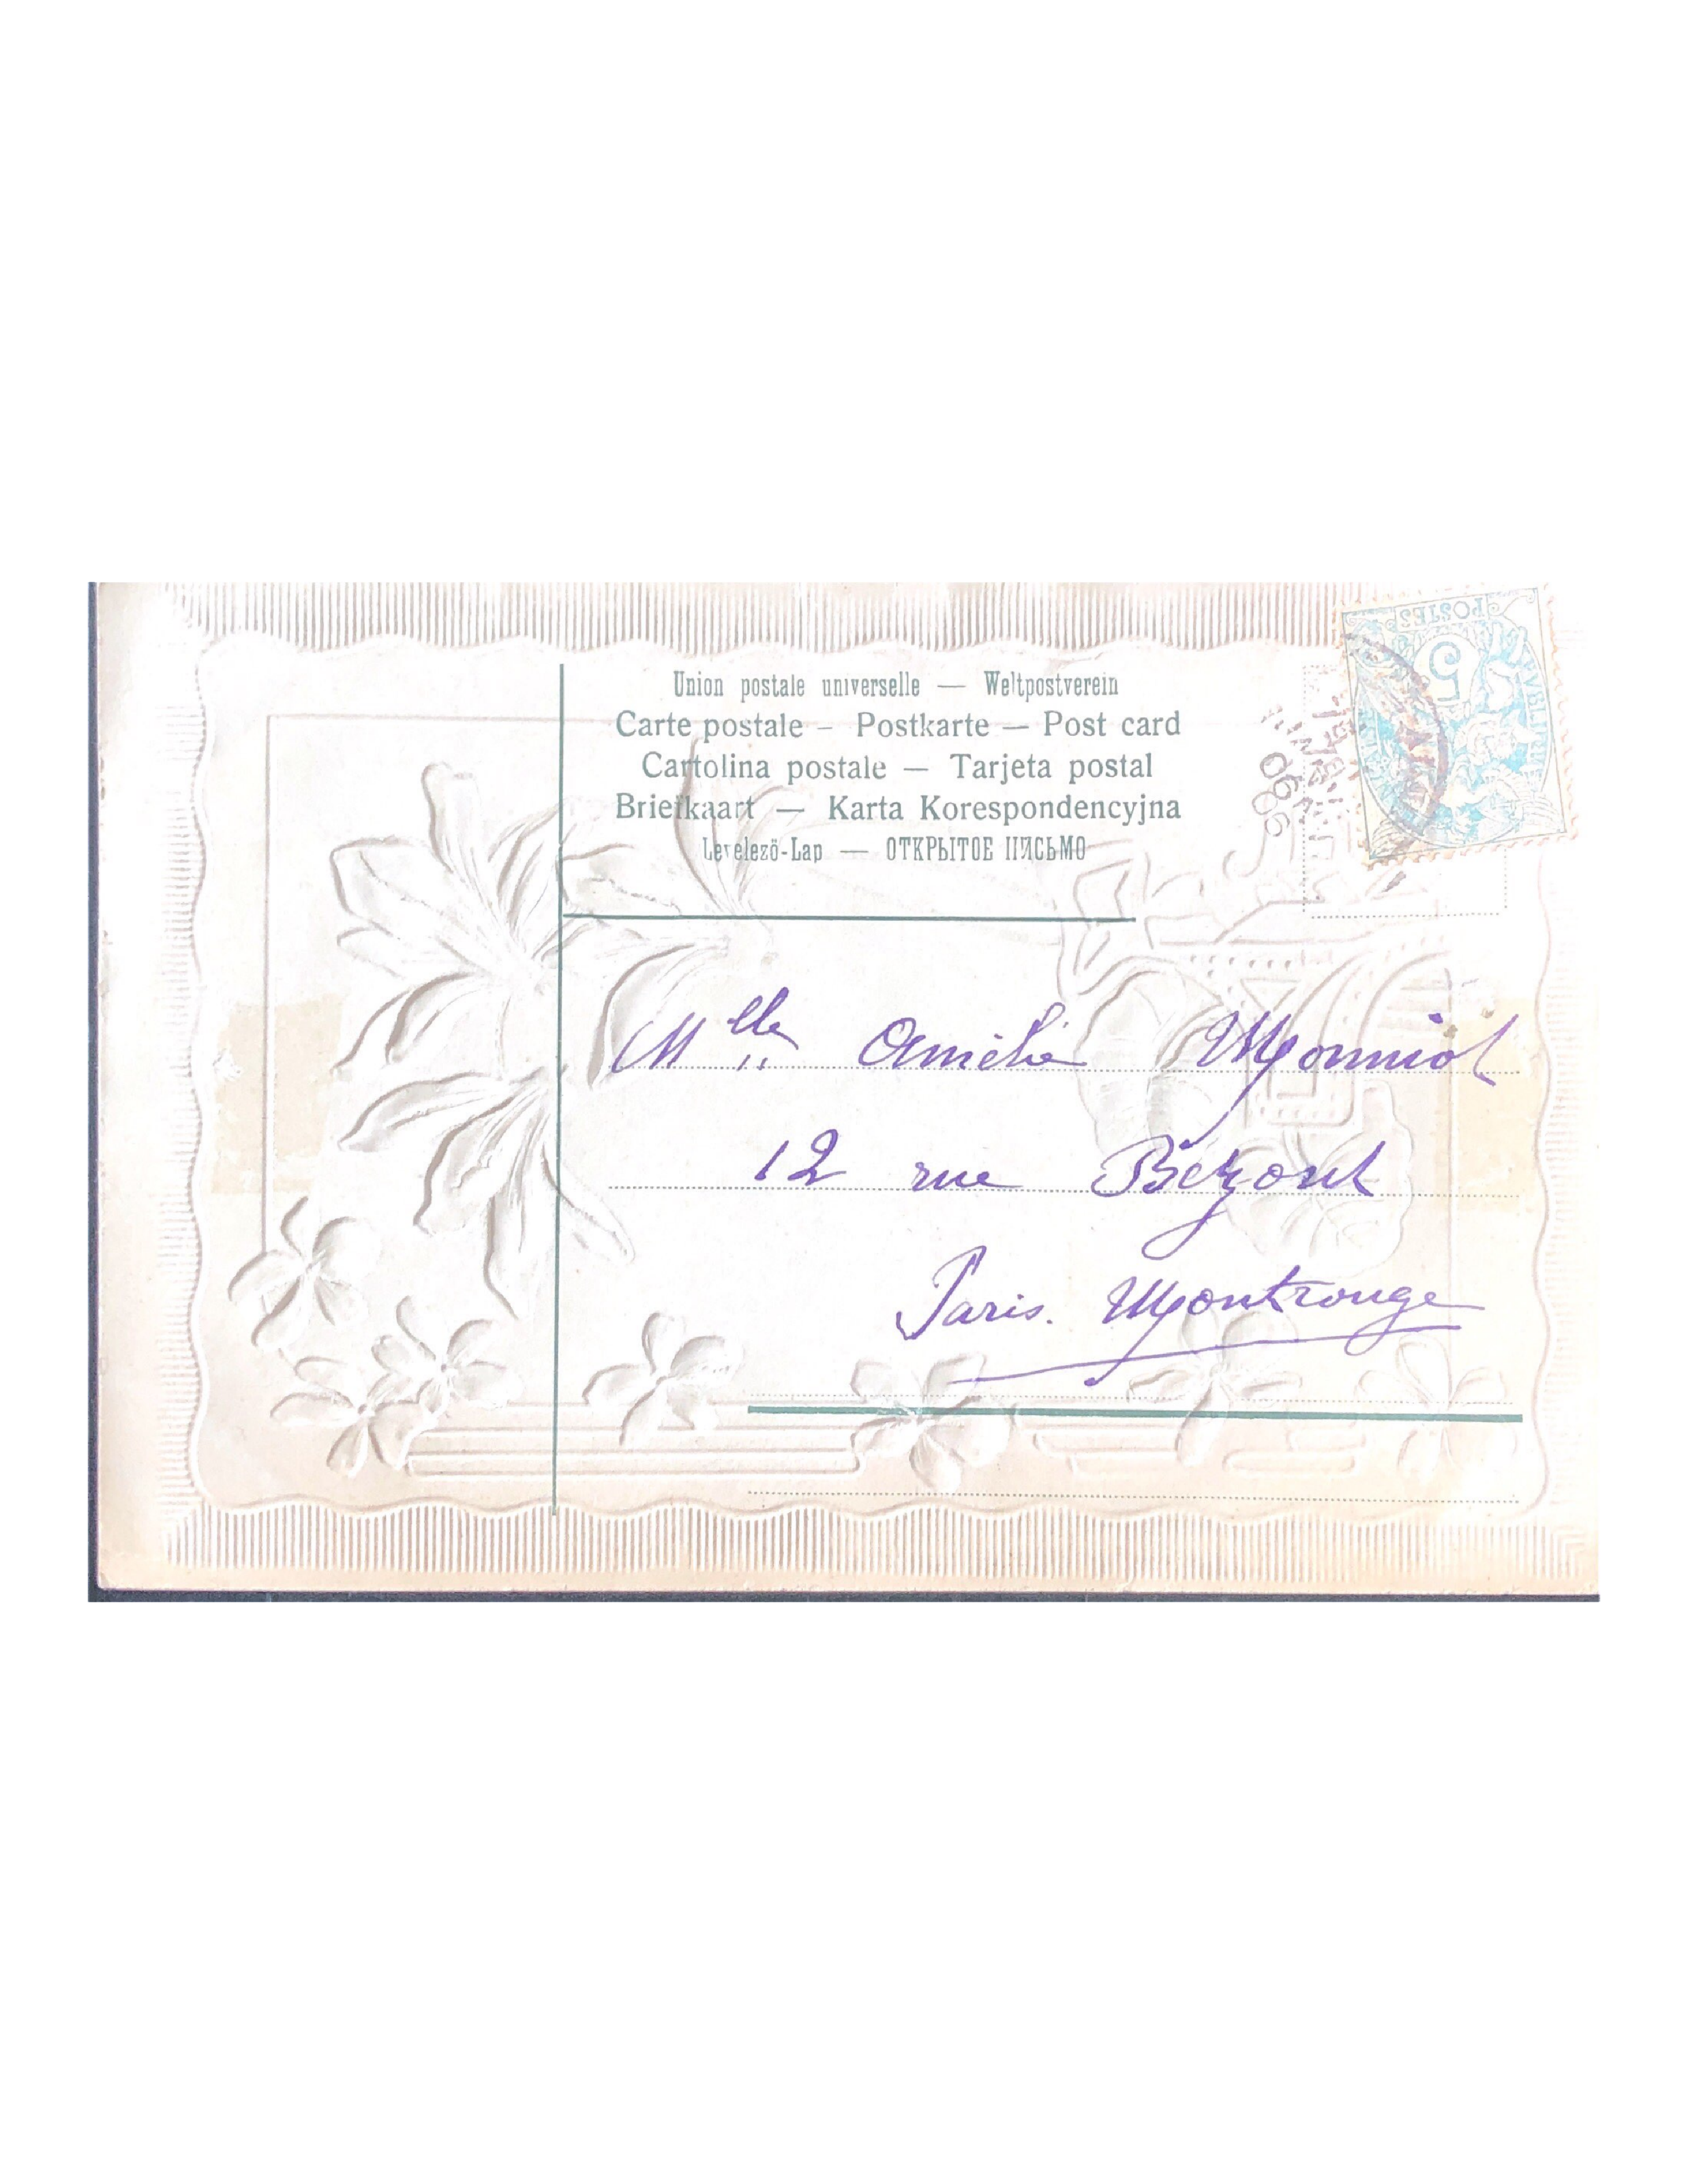 Union postale universelle — Weltpostverein
Carte postale – Postkarte — Post card
Cartolina postale — Tarjeta postal
Briefkaart — Karta Korespondencyjna
Levelező-Lap — ОТКРЫТОЕ ПИСЬМО
POSTES
5
06
Mlle Amélie Monniot
12 rue Bezout
Paris. Montrouge